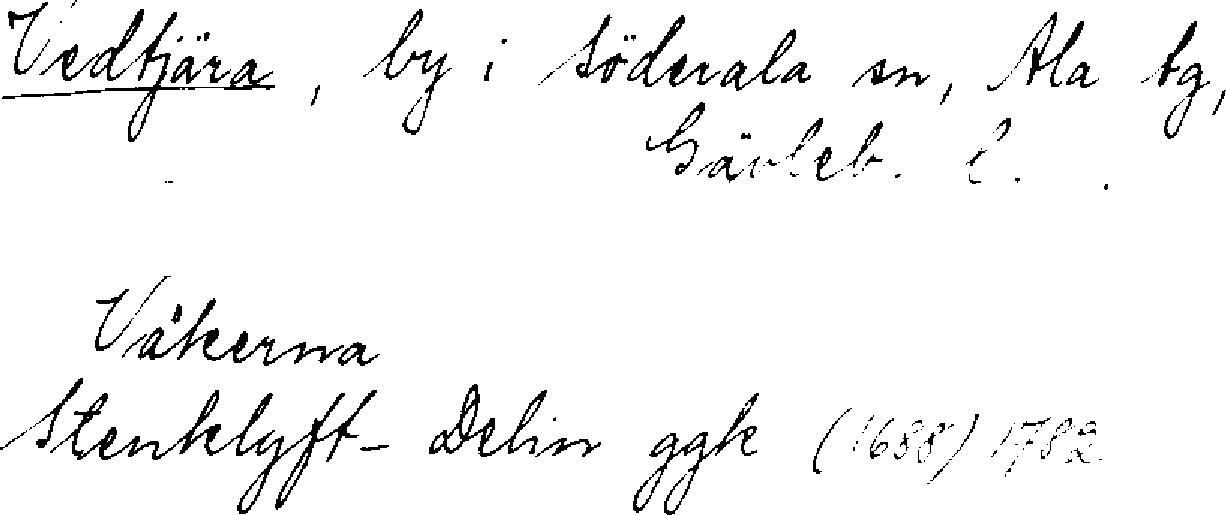 Vedtjära, by i Söderala sn, Ala tg,
Gävleb. l.
Väkerna
Stenklyft- Delin ggk (1688) 1782